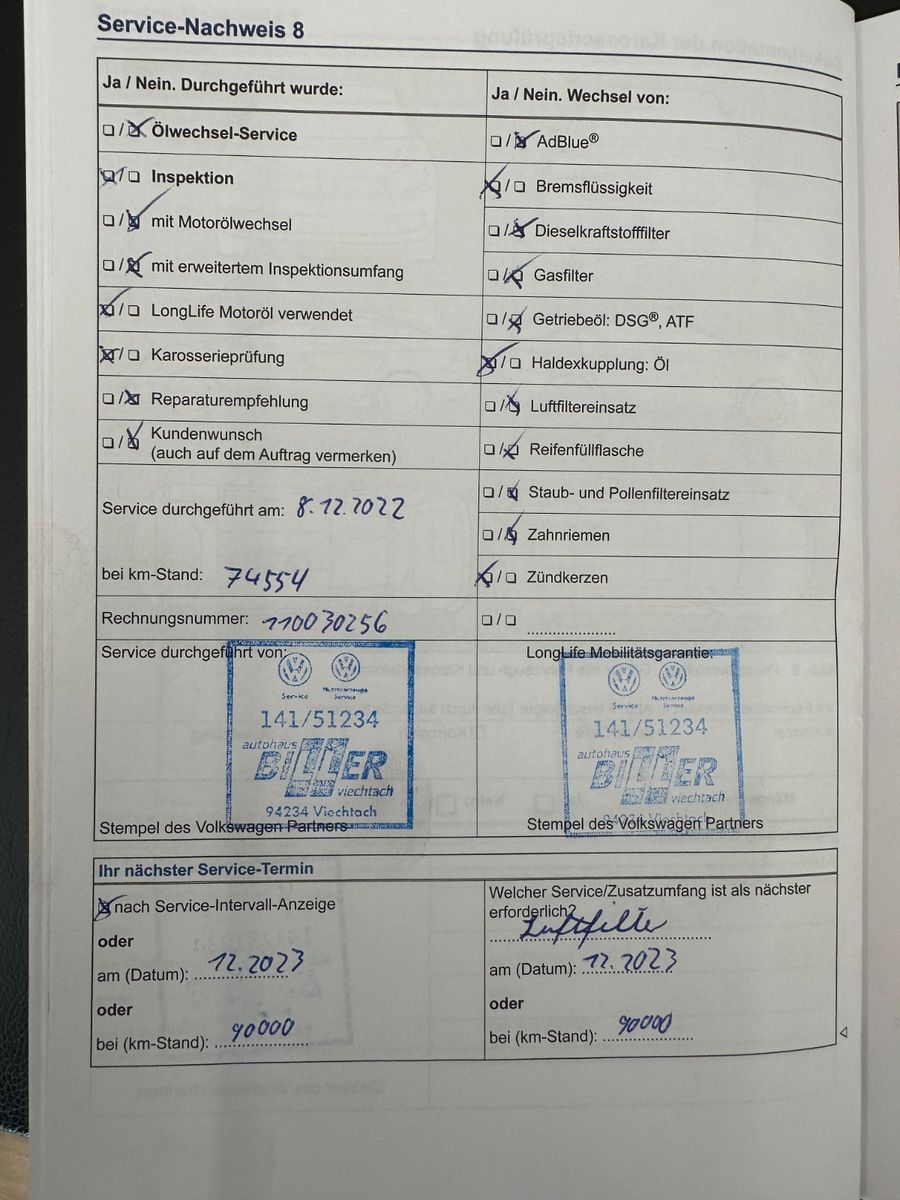 Service-Nachweis 8
Ja / Nein. Durchgeführt wurde:
☐ / ☒ Ölwechsel-Service
☒ / ☐ Inspektion
☐ / ☒ mit Motorölwechsel
☐ / ☒ mit erweitertem Inspektionsumfang
☒ / ☐ LongLife Motoröl verwendet
☒ / ☐ Karosserieprüfung
☐ / ☒ Reparaturempfehlung
☐ / ☒ Kundenwunsch
(auch auf dem Auftrag vermerken)
Service durchgeführt am: 8.12.2022
bei km-Stand: 74554
Rechnungsnummer: 110030256
Service durchgeführt von:
Service Nutzfahrzeuge Service
141/51234
autohaus
BITTNER
viechtach
94234 Viechtach
Stempel des Volkswagen Partners
Ja / Nein. Wechsel von:
☐ / ☒ AdBlue®
☒ / ☐ Bremsflüssigkeit
☐ / ☒ Dieselkraftstofffilter
☐ / ☒ Gasfilter
☐ / ☒ Getriebeöl: DSG®, ATF
☒ / ☐ Haldexkupplung: Öl
☐ / ☒ Luftfiltereinsatz
☐ / ☒ Reifenfüllflasche
☐ / ☒ Staub- und Pollenfiltereinsatz
☐ / ☒ Zahnriemen
☒ / ☐ Zündkerzen
☐ / ☐ ......................
LongLife Mobilitätsgarantie:
Service Nutzfahrzeuge Service
141/51234
autohaus
BITTNER
viechtach
94234 Viechtach
Stempel des Volkswagen Partners
Ihr nächster Service-Termin
☒ nach Service-Intervall-Anzeige
oder
am (Datum): 12.2023
oder
bei (km-Stand): 90000
Welcher Service/Zusatzumfang ist als nächster
erforderlich?
Luftfilter
am (Datum): 12.2023
oder
bei (km-Stand): 90000